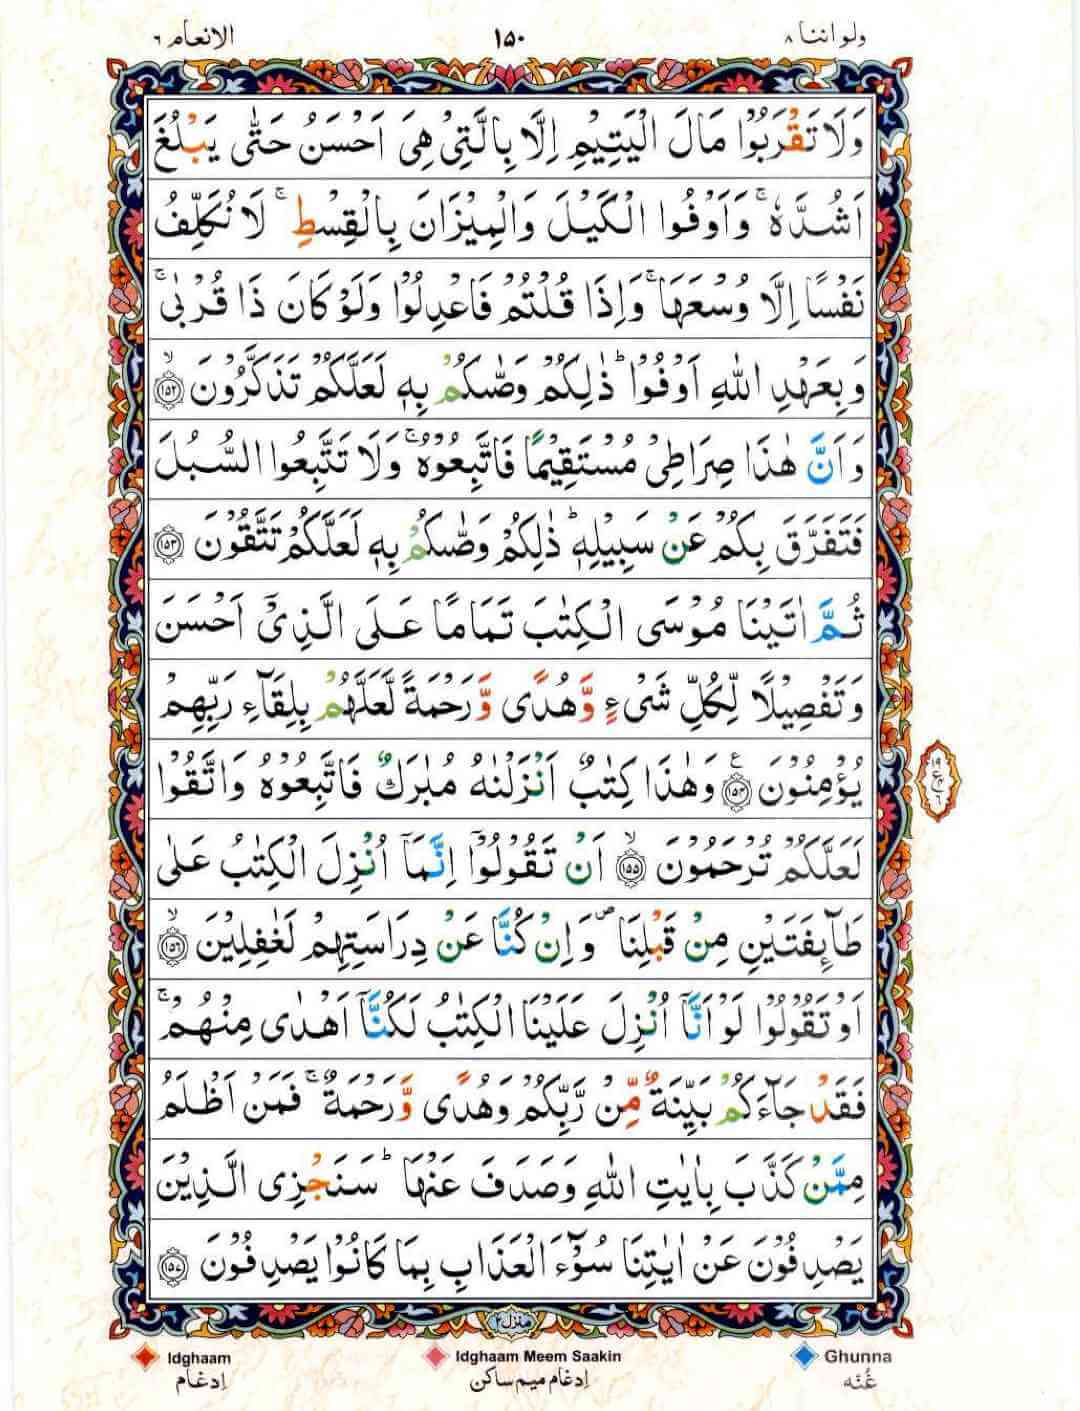 ولواننا ٨ ١٥٠ الانعام ٦
وَلَا تَقْرَبُوْا مَالَ الْيَتِيْمِ اِلَّا بِالَّتِيْ هِيَ اَحْسَنُ حَتّٰى يَبْلُغَ
اَشُدَّهٗ ۚ وَاَوْفُوا الْكَيْلَ وَالْمِيْزَانَ بِالْقِسْطِ ۚ لَا نُكَلِّفُ
نَفْسًا اِلَّا وُسْعَهَا ۚ وَاِذَا قُلْتُمْ فَاعْدِلُوْا وَلَوْ كَانَ ذَا قُرْبٰى ۚ
وَبِعَهْدِ اللّٰهِ اَوْفُوْا ؕ ذٰلِكُمْ وَصّٰىكُمْ بِهٖ لَعَلَّكُمْ تَذَكَّرُوْنَ ۙ ﴿١٥٢﴾
وَاَنَّ هٰذَا صِرَاطِيْ مُسْتَقِيْمًا فَاتَّبِعُوْهُ ۚ وَلَا تَتَّبِعُوا السُّبُلَ
فَتَفَرَّقَ بِكُمْ عَنْ سَبِيْلِهٖ ؕ ذٰلِكُمْ وَصّٰىكُمْ بِهٖ لَعَلَّكُمْ تَتَّقُوْنَ ﴿١٥٣﴾
ثُمَّ اٰتَيْنَا مُوْسَى الْكِتٰبَ تَمَامًا عَلَى الَّذِيْٓ اَحْسَنَ
وَتَفْصِيْلًا لِّكُلِّ شَيْءٍ وَّهُدًى وَّرَحْمَةً لَّعَلَّهُمْ بِلِقَآءِ رَبِّهِمْ
يُؤْمِنُوْنَ ﴿١٥٤﴾ ع وَهٰذَا كِتٰبٌ اَنْزَلْنٰهُ مُبٰرَكٌ فَاتَّبِعُوْهُ وَاتَّقُوْا
لَعَلَّكُمْ تُرْحَمُوْنَ ۙ ﴿١٥٥﴾ اَنْ تَقُوْلُوْٓا اِنَّمَآ اُنْزِلَ الْكِتٰبُ عَلٰى
طَآئِفَتَيْنِ مِنْ قَبْلِنَا ۪ وَاِنْ كُنَّا عَنْ دِرَاسَتِهِمْ لَغٰفِلِيْنَ ۙ ﴿١٥٦﴾
اَوْ تَقُوْلُوْا لَوْ اَنَّآ اُنْزِلَ عَلَيْنَا الْكِتٰبُ لَكُنَّآ اَهْدٰى مِنْهُمْ ۚ
فَقَدْ جَآءَكُمْ بَيِّنَةٌ مِّنْ رَّبِّكُمْ وَهُدًى وَّرَحْمَةٌ ۚ فَمَنْ اَظْلَمُ
مِمَّنْ كَذَّبَ بِاٰيٰتِ اللّٰهِ وَصَدَفَ عَنْهَا ؕ سَنَجْزِى الَّذِيْنَ
يَصْدِفُوْنَ عَنْ اٰيٰتِنَا سُوْٓءَ الْعَذَابِ بِمَا كَانُوْا يَصْدِفُوْنَ ﴿١٥٧﴾
منزل ٢
Idghaam Idghaam Meem Saakin Ghunna
اِدغام اِدغام میم ساکن غُنّه